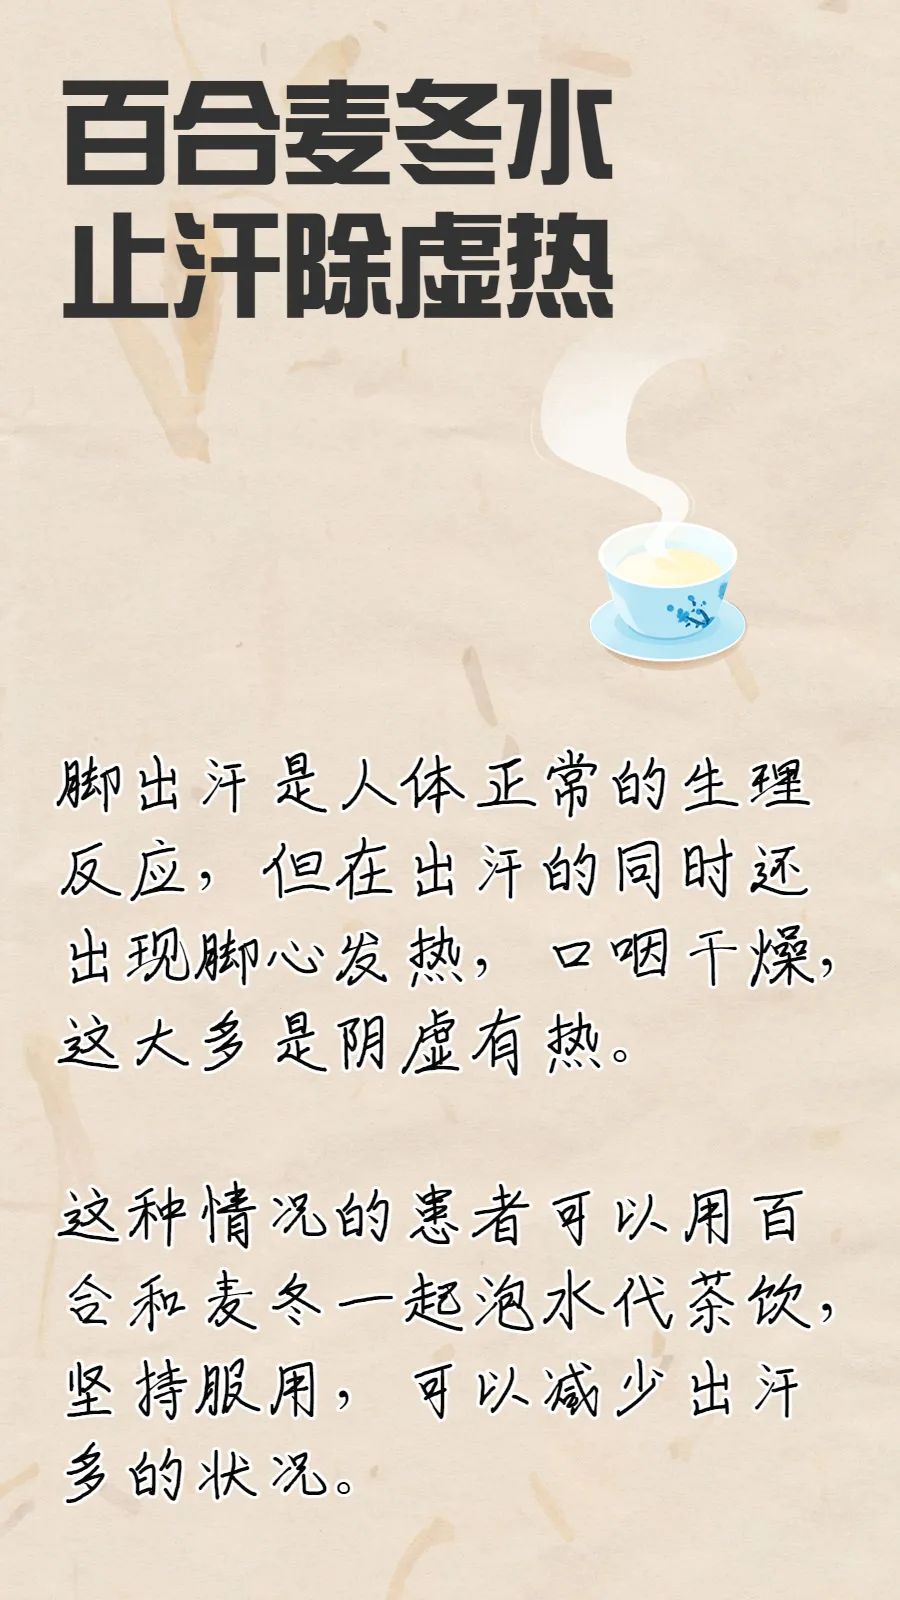 百合麦冬水
止汗除虚热
脚出汗是人体正常的生理
反应，但在出汗的同时还
出现脚心发热，口咽干燥，
这大多是阴虚有热。
这种情况的患者可以用百
合和麦冬一起泡水代茶饮，
坚持服用，可以减少出汗
多的状况。